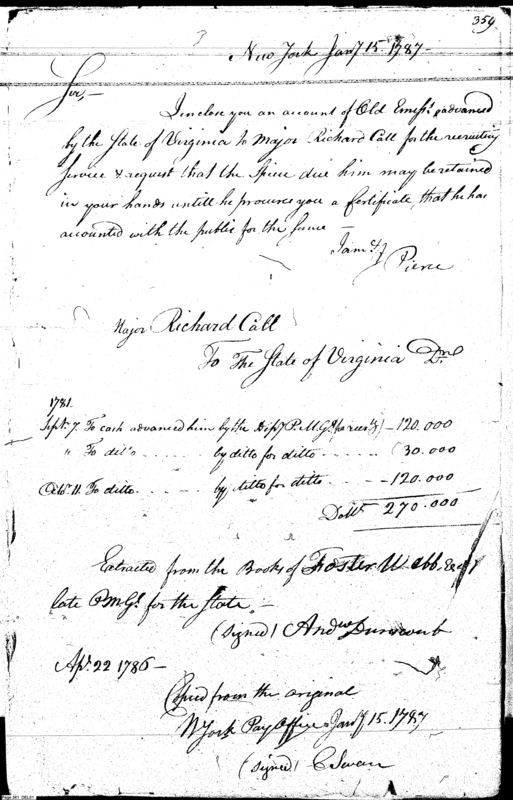 359
New York Jany 15. 1787-
Sir,-
I inclose you an account of Old Emisss. advanced
by the State of Virginia to Major Richard Call for the recruiting
Service & request that the Specie due him may be retained
in your hands untill he procures you a Certificate, that he has
accounted with the public for the same -
I am &c
Pierce
Major Richard Call
To The State of Virginia Dr.
1781.
Septr. 7. To cash advanced him by the Depy P.M.Gl. - 120.000
" To ditto . . . . . . by ditto for ditto . . . . . . 30.000
Octbr. 11. To ditto . . . . . by ditto for ditto . . . . . - 120.000
Dollrs. 270.000
Extracted from the Books of Foster Webb, Esqr
late P.M.Gl. for the State -
(signed) Andw Dunscomb
Apl. 22 1786 -
Copied from the original
N York Pay Office Jany 15. 1787
(signed) C Swan